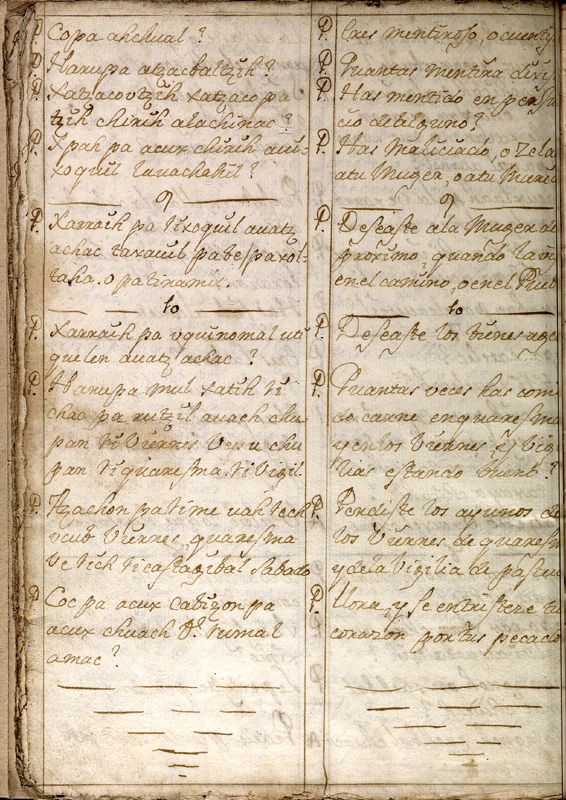 P. Copa ahchual?
P. Harupa atzacbaltzih?
P. Xatzacovtzih xatzaco pa
tzih chirih alachinac?
P. Xpah pa acux chirih auix
xoquil lauachahil?
9
P. Xarraih pa rixoquil auatz
achac taxauil pa be, paxol
taha. o patinamit.
10
P. Xarraih pa uquinomal uti
quelen auatz achac?
P. Harupa mul xatih ti
chac pa rutzil auach chu
pan ri Viernes Vesu chu
pan ri quaresma ri Vigil.
P. Azachon pa rime uah tech
ucub Viernes, quaresma
Vetich ricastagibal Sabado
P. Coc pa acux cabizon pa
acux chuach D.s rumal
amac?
P. Eres mentiroso, o cuenty
P. Quantas mentira
P. Has mentido en
cio de alguno?
P. Has maliciado, o Zela
atu Muger, o atu Mari
9
P. Deseaste ala Muger de
proximo, quando la
en el camino, o en el Pueb
10
P. Deseaste los bienes age
P. Quantas veces has comi
do carne en quaresma
y en los Viernes, y Vigi
lias estando bueno?
P. Perdiste los ayunos de
los Viernes de quaresm
y de la Vigilia de pascu
P. Llora, y se entristeze tu
corazon por tus pecado